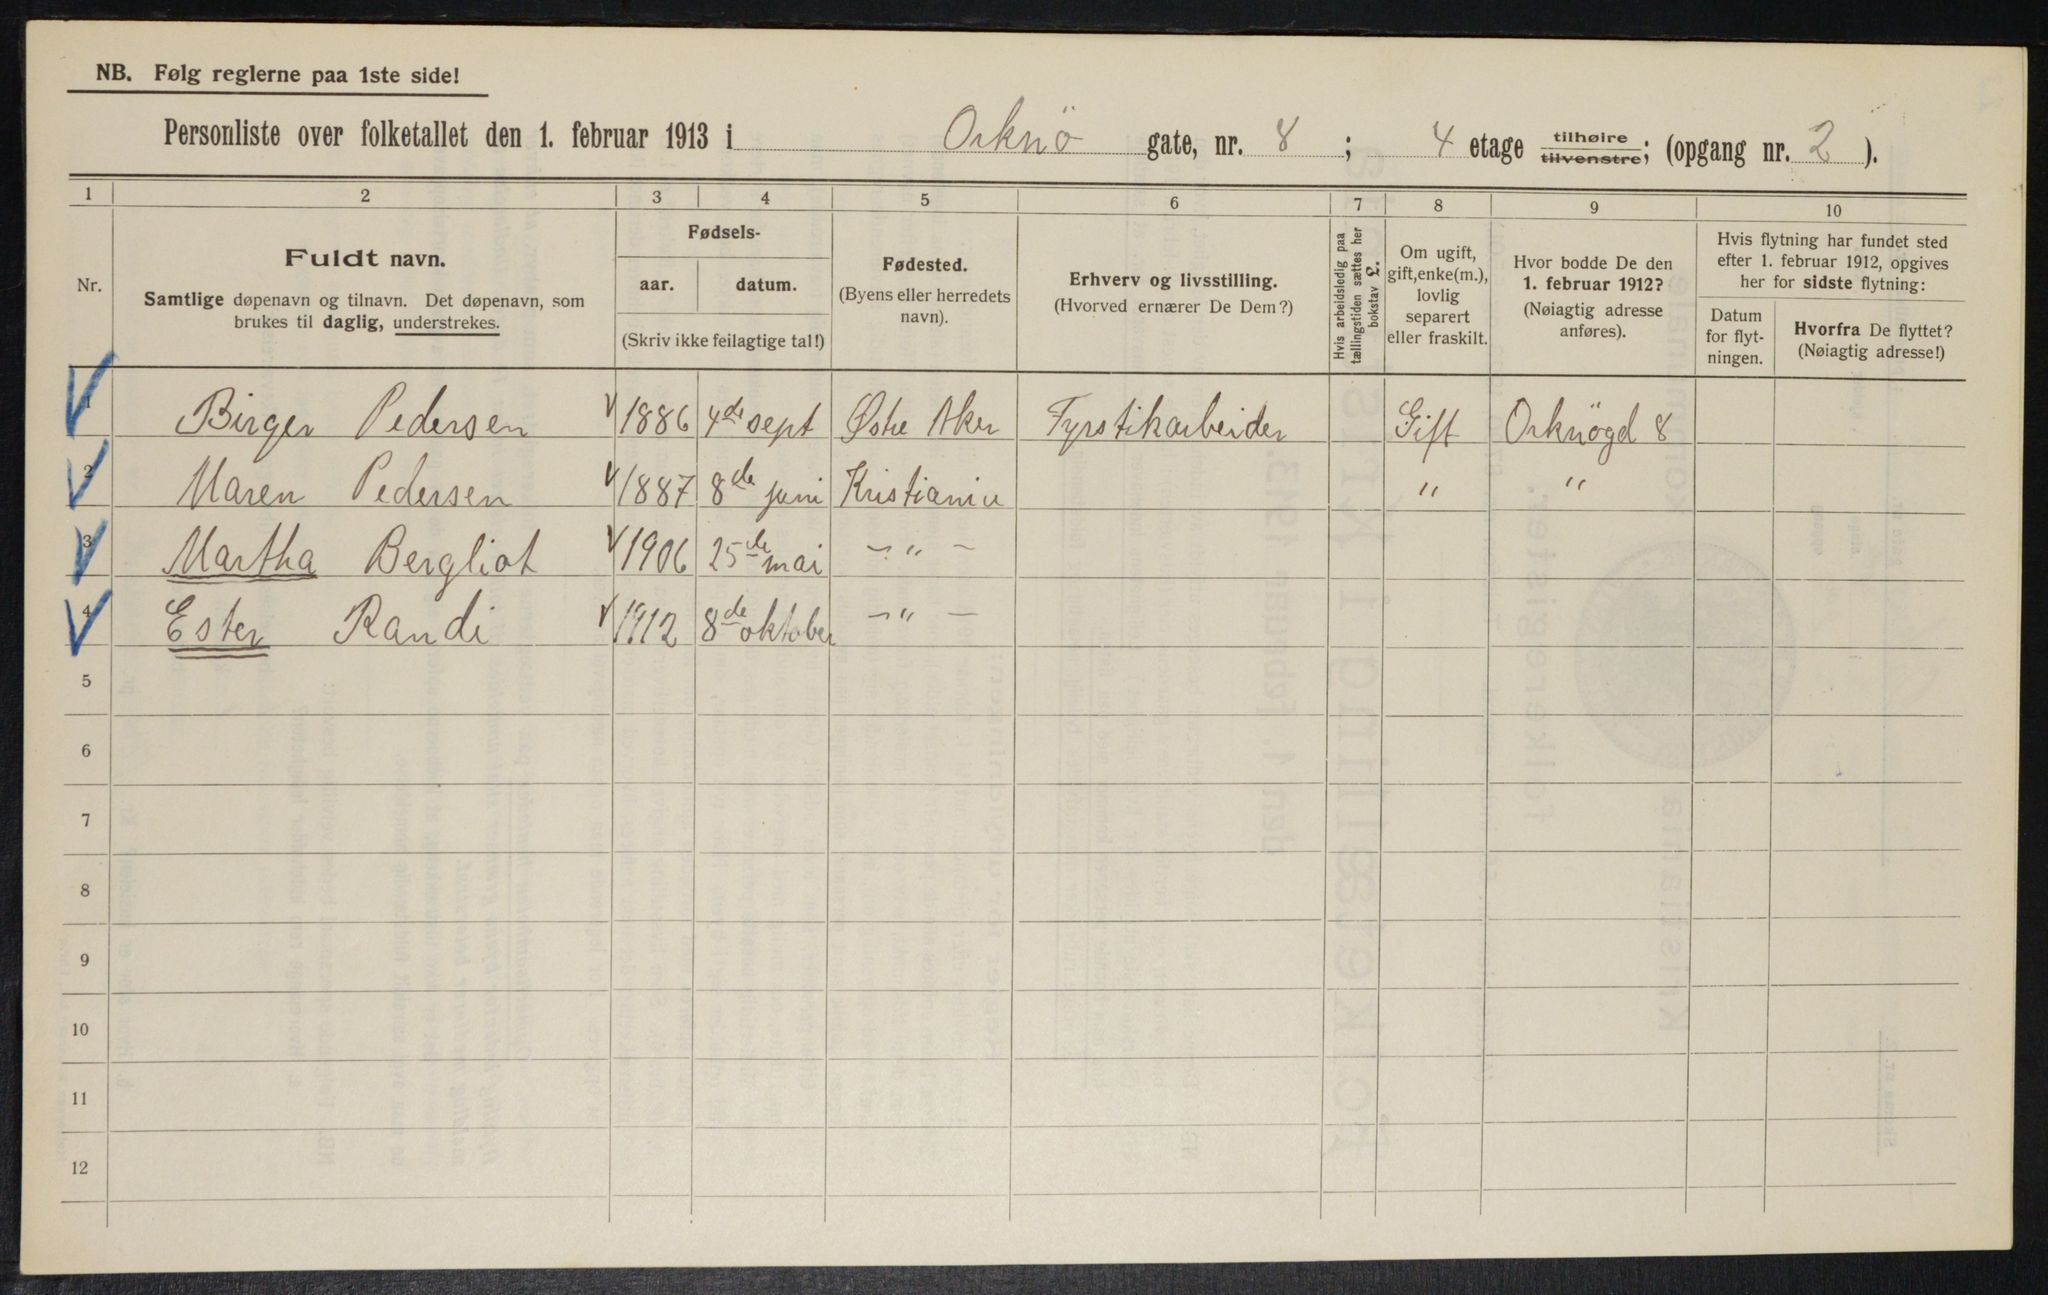 NB. Følg reglerne paa 1ste side!
Personliste over folketallet den 1. februar 1913 i Orknö gate, nr. 8 ; 4 etage tilhøire tilvenstre; (opgang nr. 2 ).
1 2 3 4 5 6 7 8 9 10
Nr.
Fuldt navn.
Samtlige døpenavn og tilnavn. Det døpenavn, som
brukes til daglig, understrekes.
Fødsels-
aar. datum.
(Skriv ikke feilagtige tal!)
Fødested.
(Byens eller herredets
navn).
Erhverv og livsstilling.
(Hvorved ernærer De Dem?)
Hvis arbeidsledig paa
tællingstiden sættes her
bokstav L.
Om ugift,
gift, enke(m.),
lovlig
separert
eller fraskilt.
Hvor bodde De den
1. februar 1912?
(Nøiagtig adresse
anføres).
Hvis flytning har fundet sted
efter 1. februar 1912, opgives
her for sidste flytning:
Datum
for flyt-
ningen.
Hvorfra De flyttet?
(Nøiagtig adresse!)
1 Birger Pedersen 1886 4de sept Østre Aker Fyrstikarbeider Gift Orknögd 8
2 Maren Pedersen 1887 8de juni Kristiania " "
3 Martha Bergliot 1906 25de mai - " -
4 Ester Randi 1912 8de oktober - " -
5
6
7
8
9
10
11
12